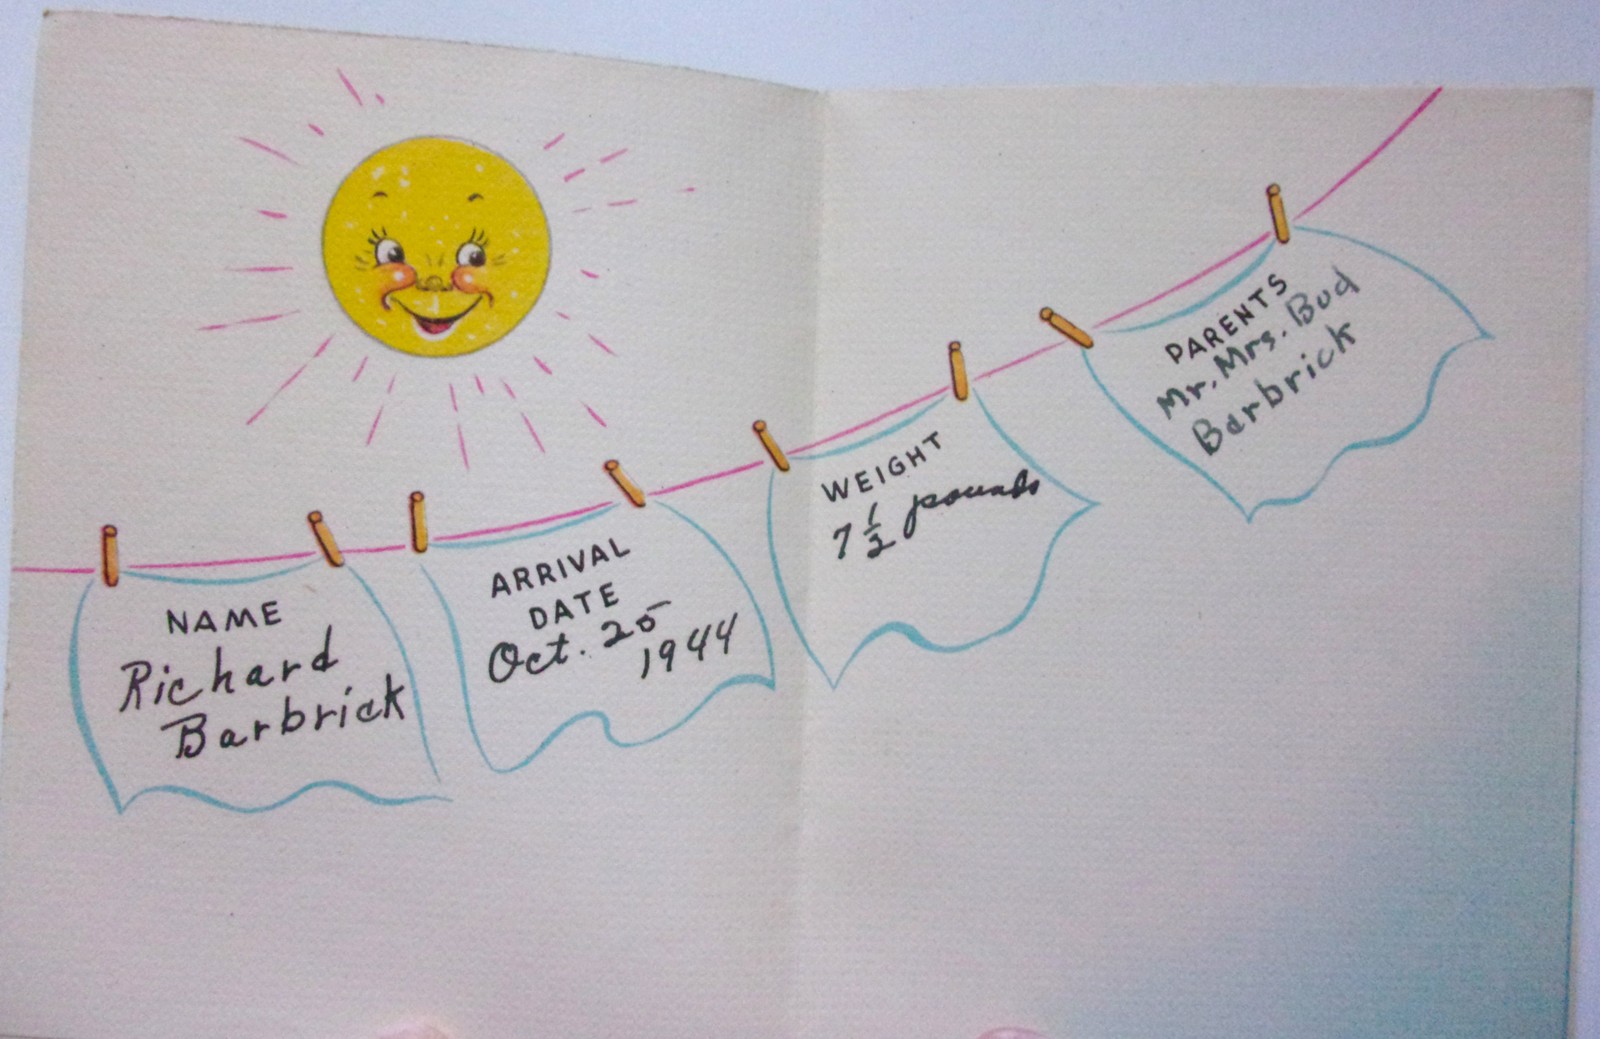 NAME
Richard
Barbrick
ARRIVAL
DATE
Oct. 25
1944
WEIGHT
7 1/2 pounds
PARENTS
Mr. Mrs. Bud
Barbrick